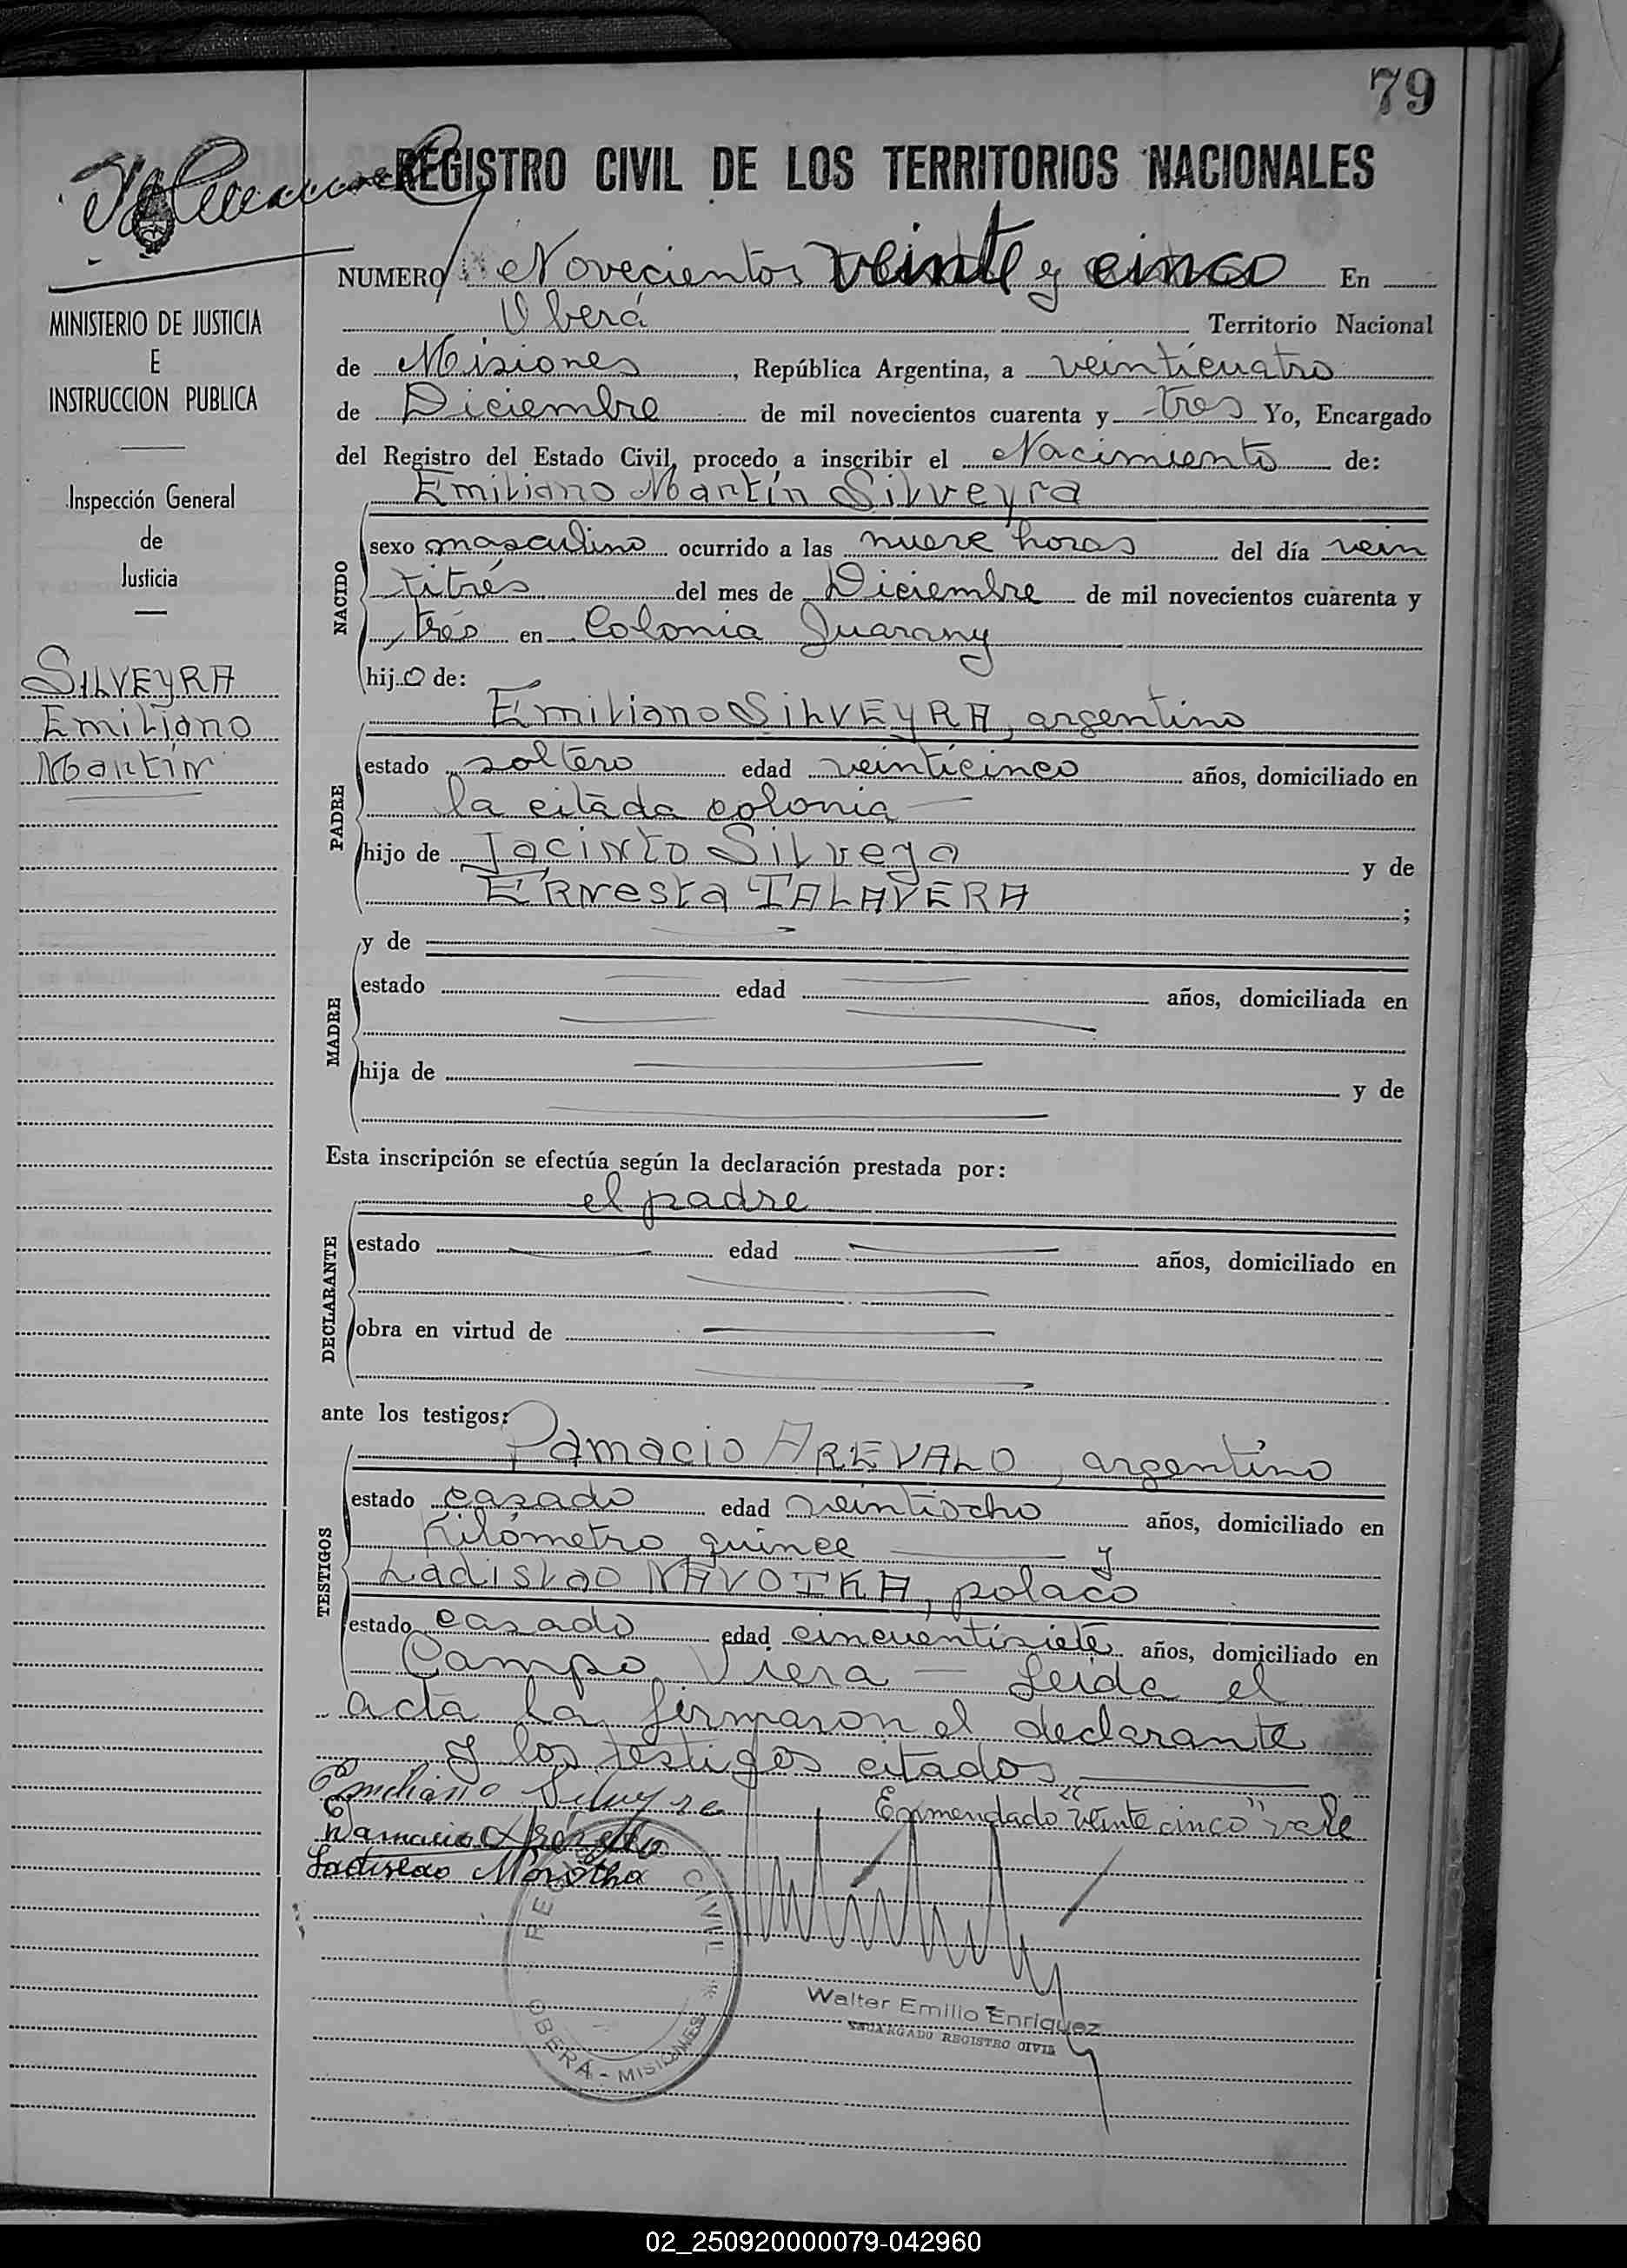 79
REGISTRO CIVIL DE LOS TERRITORIOS NACIONALES
NUMERO Novecientos veinte y cinco En
Oberá Territorio Nacional
de Misiones, República Argentina, a veinticuatro
de Diciembre de mil novecientos cuarenta y tres Yo, Encargado
del Registro del Estado Civil, procedo a inscribir el Nacimiento de:
Emiliano Martín Silveyra
NACIDO
sexo masculino ocurrido a las nueve horas del día vein
titrés del mes de Diciembre de mil novecientos cuarenta y
trés en Colonia Guarany
hijo de:
PADRE
Emiliano SILVEYRA, argentino
estado soltero edad veinticinco años, domiciliado en
la citada colonia
hijo de Jacinto Silveya y de
Ernesta TALAVERA ;
MADRE
y de
estado edad años, domiciliada en
hija de y de
Esta inscripción se efectúa según la declaración prestada por:
el padre
DECLARANTE
estado edad años, domiciliado en
obra en virtud de
ante los testigos:
TESTIGOS
Damacio AREVALO, argentino
estado casado edad veintiocho años, domiciliado en
Kilómetro quince y
Ladislao NAVOTKA, polaco
estado casado edad cincuentisiete años, domiciliado en
Campo Viera — Leida el
acta la firmaron el declarante
y los testigos citados
Emiliano Silveyra
Enmendado "veinte cinco" vale
Damacio Arévalo
Ladislao
REG CIVIL
OBERÁ - MISIONES
Walter Emilio Enriquez
ENCARGADO REGISTRO CIVIL
MINISTERIO DE JUSTICIA
E
INSTRUCCION PUBLICA
Inspección General
de
Justicia
SILVEYRA
Emiliano
Martín
02_250920000079-042960